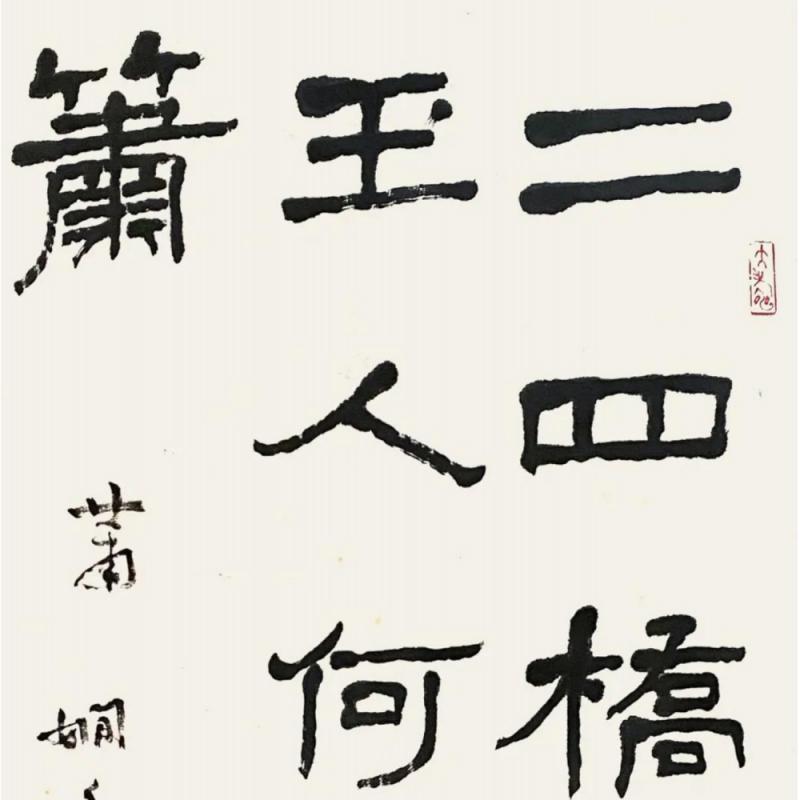 二四橋
玉人何
簫
蕭嫻